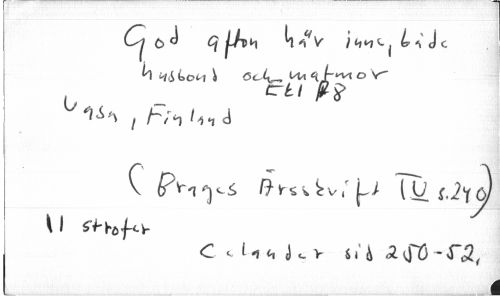 God afton här inne, både
husbond och matmor
Ek1 78
Vasa, Finland
(Brages Årsskrift IV s.240)
11 strofer
Celander sid 250-52.